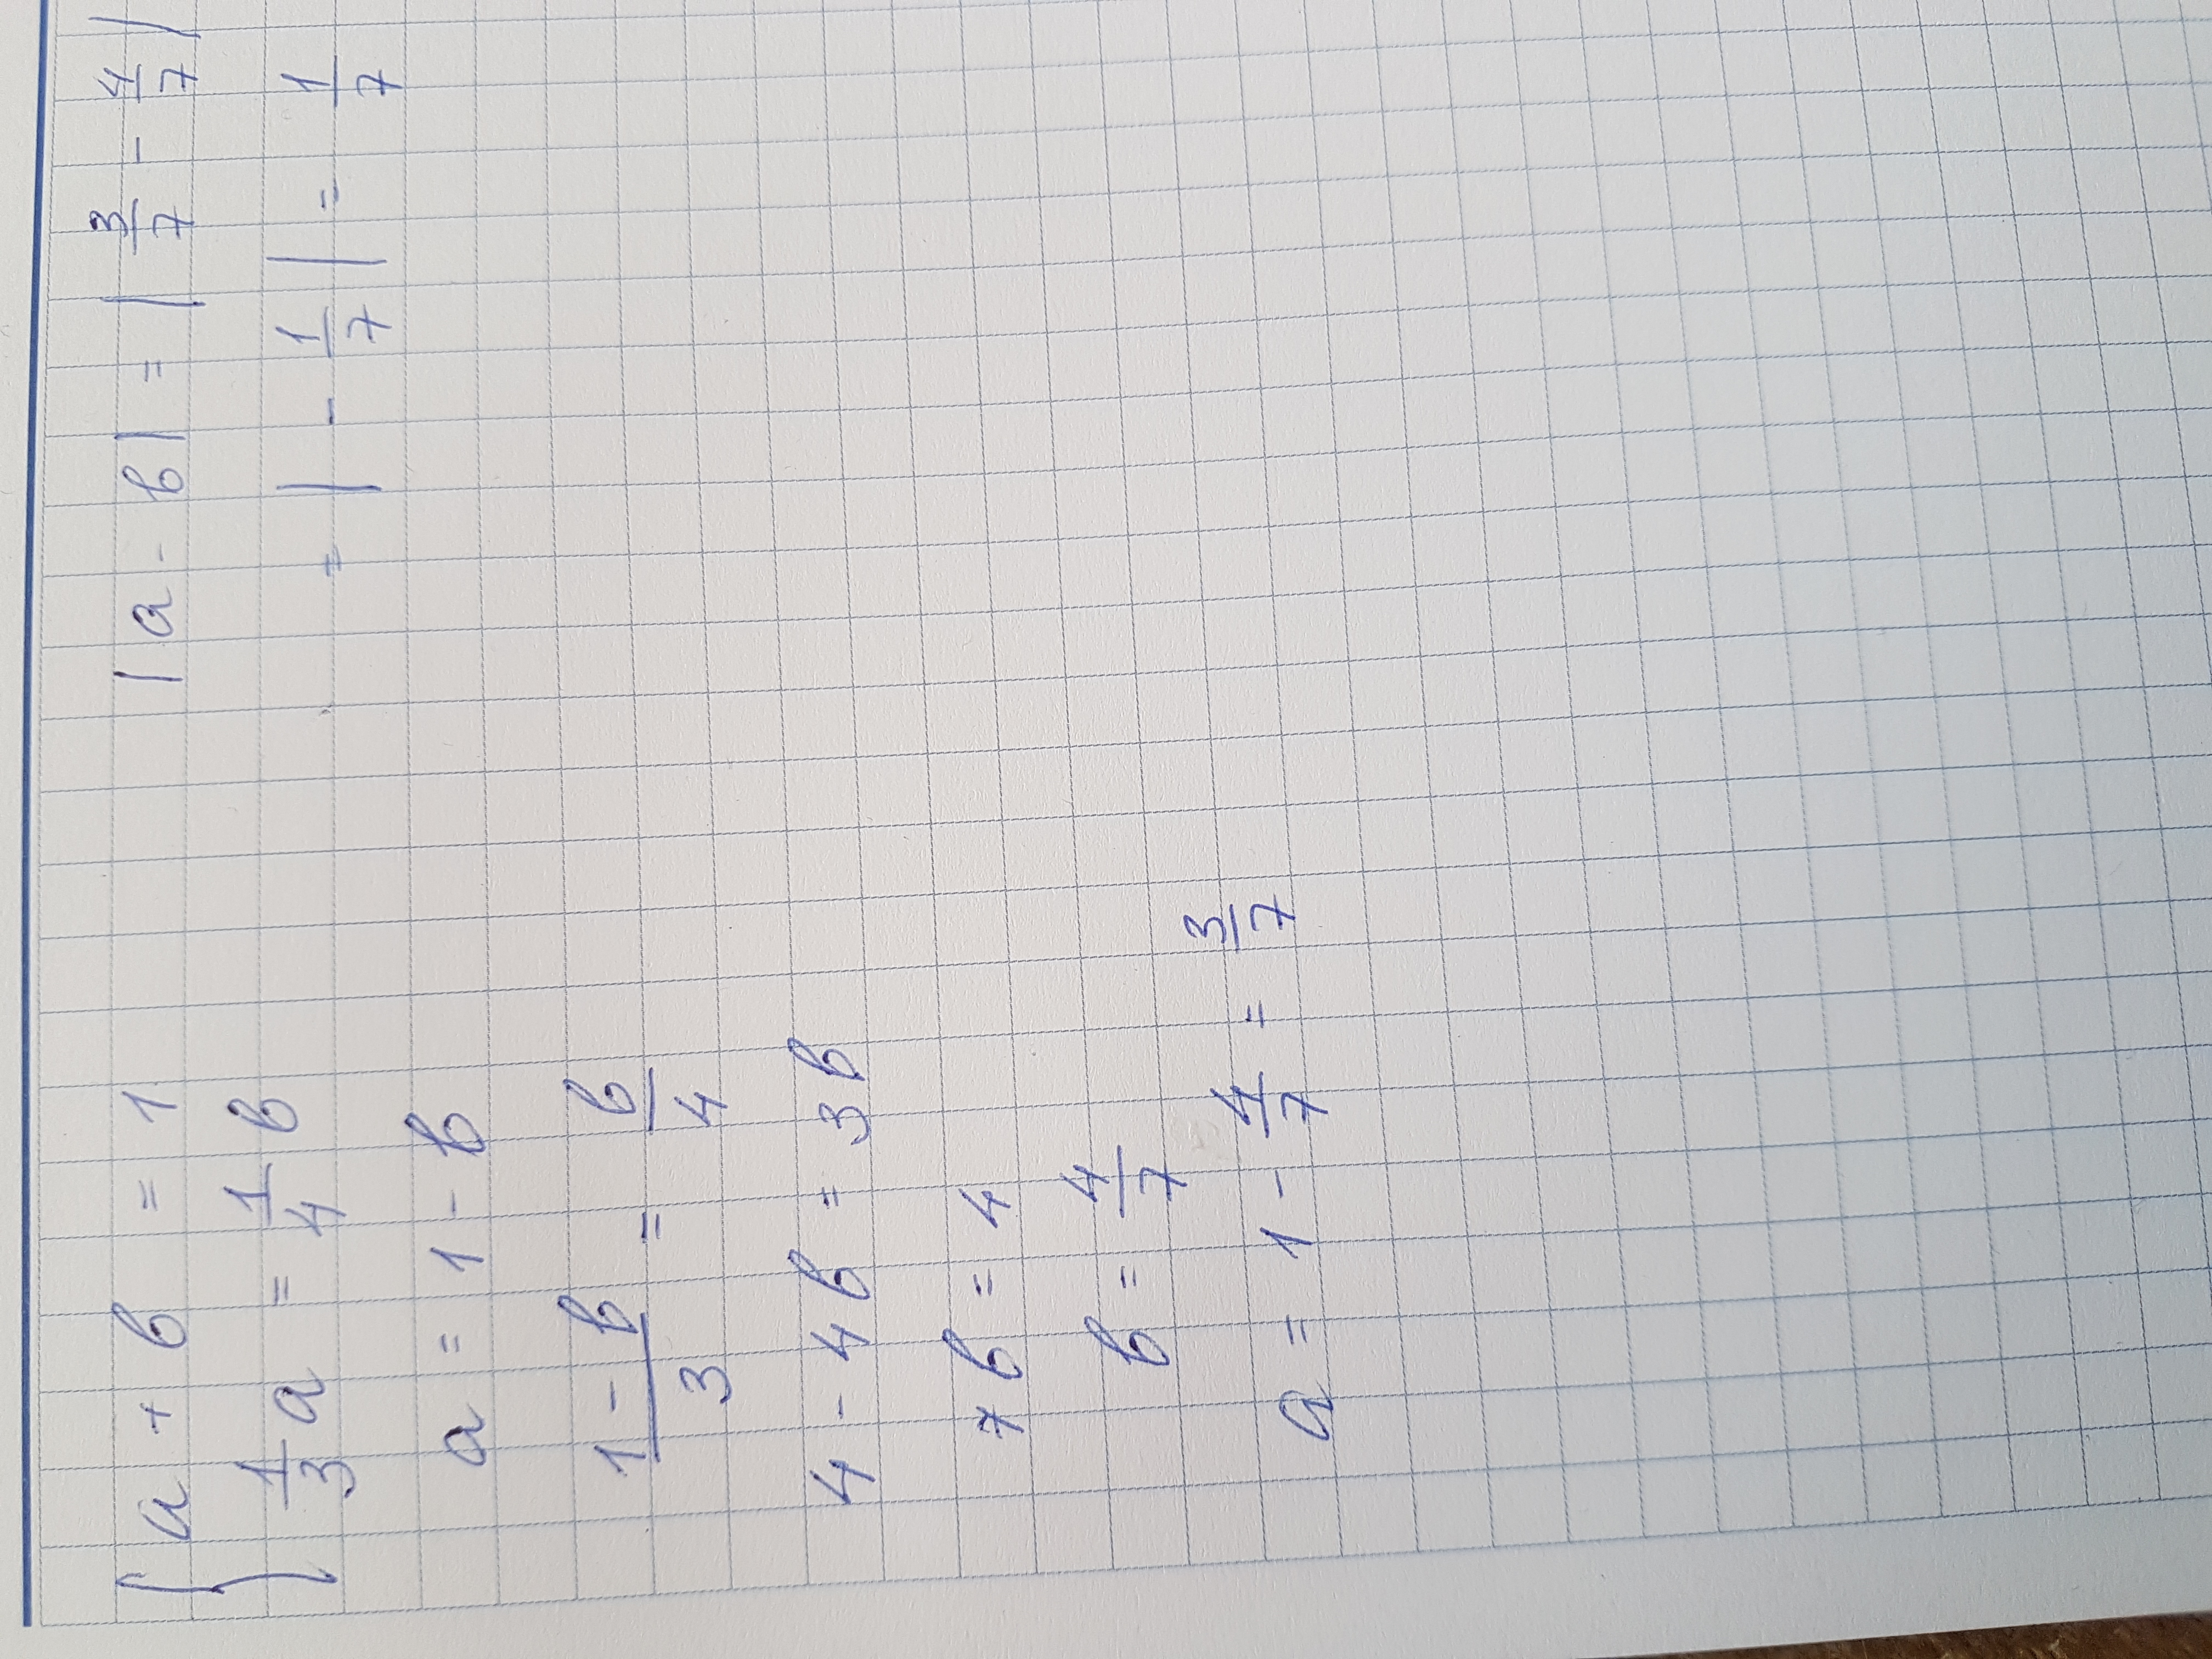 { a + b = 1
1/3 a = 1/4 b
a = 1 - b
(1 - b)/3 = b/4
4 - 4b = 3b
7b = 4
b = 4/7
a = 1 - 4/7 = 3/7
|a - b| = |3/7 - 4/7|
= |- 1/7| = 1/7